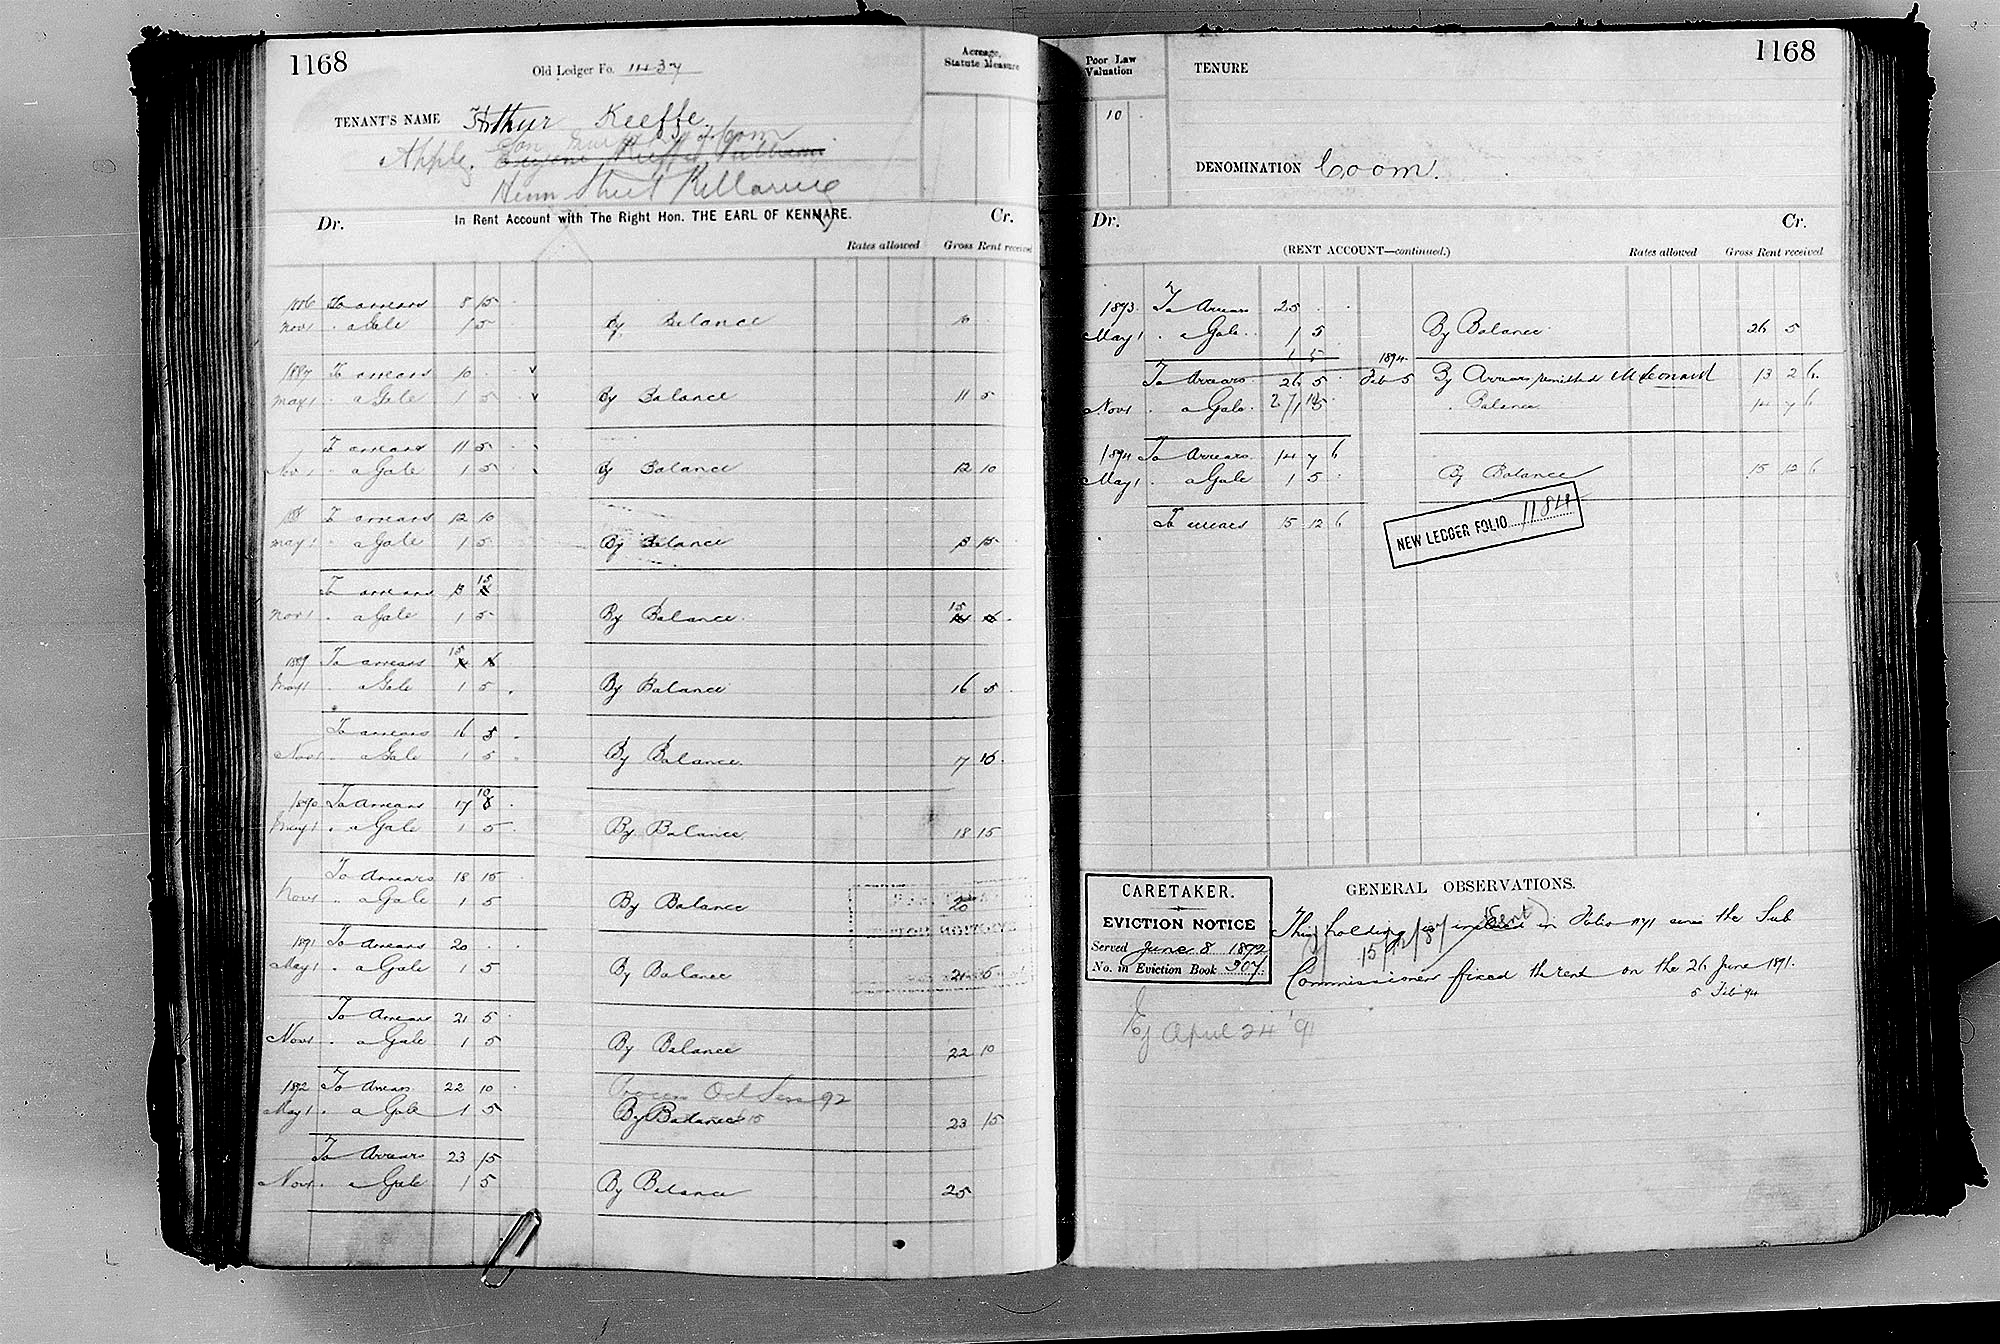 1168
Old Ledger Fo. 1437
Acreage, Statute Measure
TENANT'S NAME Arthur Keeffe
Apply.
Henn Street Killarney
Dr. In Rent Account with The Right Hon. THE EARL OF KENMARE. Cr.
Rates allowed Gross Rent received
1886 To arrears 8 15
Nov 1 . a Gale 1 5 By Balance 10
1887 To arrears 10
May 1 . a Gale 1 5 By Balance 11 5
To arrears 11 5
Nov 1 . a Gale 1 5 By Balance 12 10
To arrears 12 10
May 1 . a Gale 1 5 By Balance 13 15
To arrears 13 15
Nov 1 . a Gale 1 5 By Balance 15
1889 To arrears 15
May 1 . a Gale 1 5 By Balance 16 5
To arrears 16 5
Nov 1 . a Gale 1 5 By Balance 17 10
1890 To Arrears 17 10
May 1 . a Gale 1 5 By Balance 18 15
To Arrears 18 15
Nov 1 . a Gale 1 5 By Balance 20
1891 To Arrears 20
May 1 . a Gale 1 5 By Balance 21 5
To Arrears 21 5
Nov 1 . a Gale 1 5 By Balance 22 10
1892 To Arrears 22 10 Process Oct Sess 92
May 1 . a Gale 1 5 By Balance 23 15
To Arrears 23 15
Nov 1 . a Gale 1 5 By Balance 25
1168
Poor Law Valuation
TENURE
10
DENOMINATION Coom.
Dr. Cr.
(RENT ACCOUNT—continued.) Rates allowed Gross Rent received
1893 To Arrears 25
May 1 . a Gale 1 5 By Balance 26 5
1 5 1894
To Arrears 26 5 Feb 5 By Arrears remitted McLeonard 13 2 6
Nov 1 . a Gale 1 5 . Balance 14 7 6
27 10
1894 To Arrears 14 7 6
May 1 . a Gale 1 5 By Balance 15 12 6
To arrears 15 12 6
NEW LEDGER FOLIO 1184
CARETAKER.
EVICTION NOTICE
Served June 8 1892
No. in Eviction Book 307.
GENERAL OBSERVATIONS.
This holding is in Folio 1171 since the Sub
15/12/87
Commissioner fixed the rent on the 26 June 1891.
5 Feb 94
Ej April 24 '91